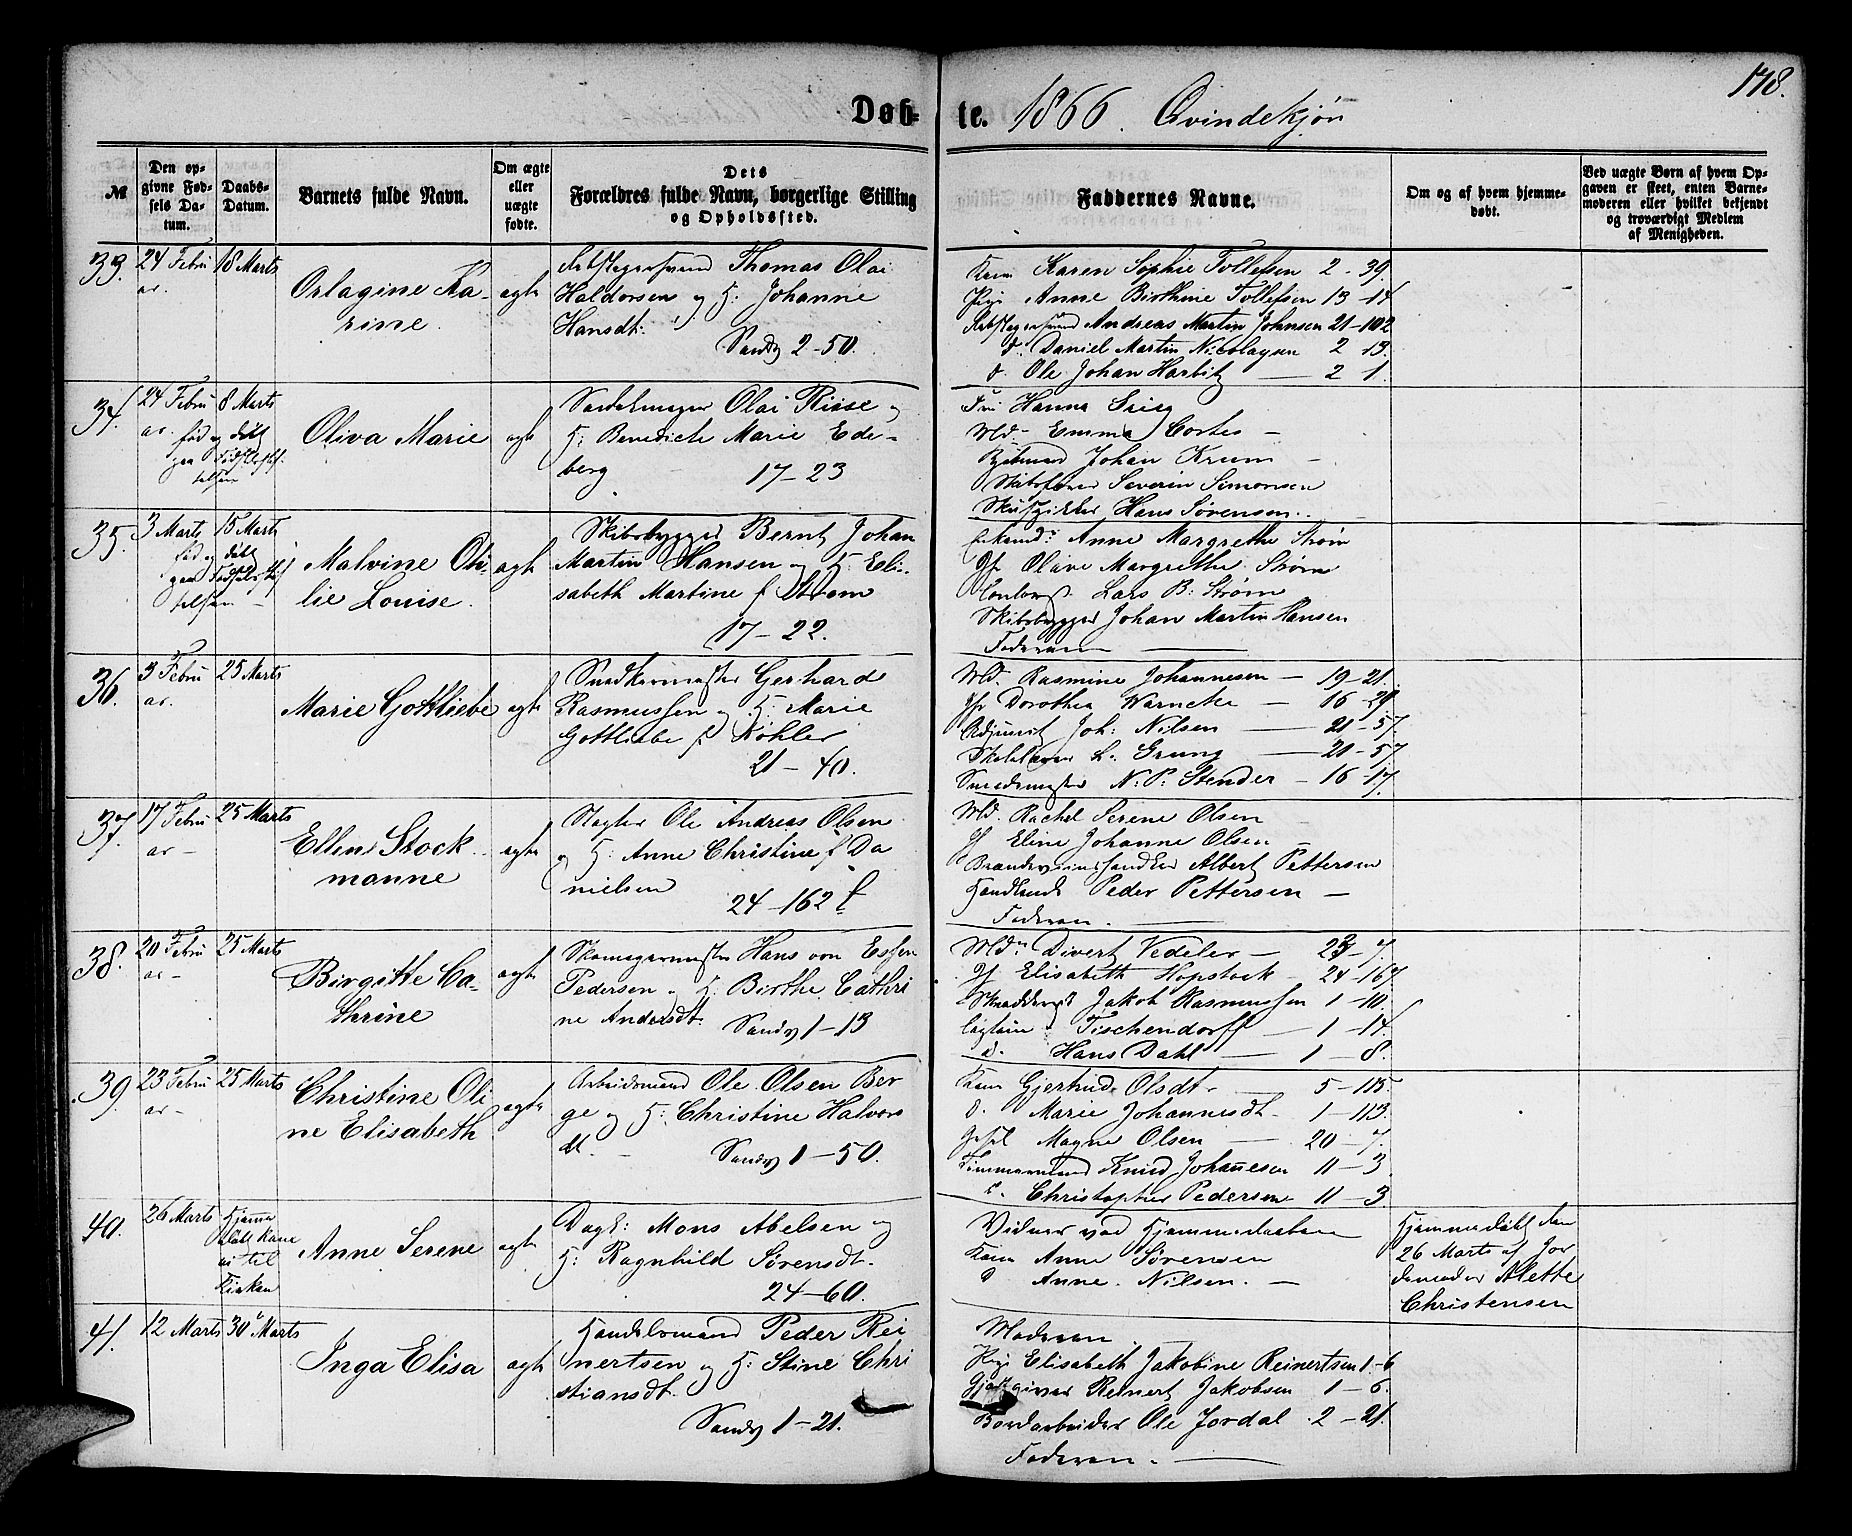 178.
Døb- te. 1866. Qvindekjøn
№
Den op-
givne Fød-
sels Da-
tum.
Daabs-
Datum.
Barnets fulde Navn.
Om ægte
eller
uægte
fødte.
Dets
Forældres fulde Navn, borgerlige Stilling
og Opholdssted.
Faddernes Navne.
Om og af hvem hjemme-
døbt.
Ved uægte Børn af hvem Op-
gaven er skeet, enten Barne-
moderen eller hvilket bekjendt
og troværdigt Medlem
af Menigheden.
33. 24 Febru 18 Marts
ar.
Oslagine Ka-
rine.
ægte
Thomas Olai
Haldorsen og H: Johanne
Hansdt:
Sandv 2-50.
Kone Karen Sophie Tollefsen 2-39.
Pige Anne Birthine Tollefsen 13-14
Andreas Martin Johnsen 21-102
d. Daniel Martin Nicolaysen 2 13.
d. Ole Johan Harbitz 2 1.
34. 24 Febru 8 Marts
ar. fød og døbt
paa Fødselsstif-
telsen
Oliva Marie
ægte
Olai Riise og
H: Benedicte Marie Ede-
berg
17-23
Fru Hanna Krieg
Md. Emma Cortes -
Johan Krum -
Skibsfører Severin Simonsen
Hans Sørensen.
35. 3 Marts 15 Marts
fød og døbt
paa Fødselsstif
telsen -
Malvine Oti-
lie Louise.
ægte
Skibsbygger Bernt Johan
Martin Hansen og H: Eli-
sabeth Martine f Strøm
17-22.
Anne Margrethe Strøm
Jf Olave Margrethe Strøm
Lars B: Strøm
Skibsbygger Johan Martin Hansen
Faderen
36. 3 Febru 25 Marts
ar.
Marie Gottliebe
ægte
Snedkermester Gerhard
Rasmussen og H: Marie
Gottliebe f Köhler
21-40.
Md. Rasmine Johannesen - 19-21.
Jf Dorothea Warncke - 16-29
Adjunct Joh: Nilsen 21-57.
Skolelærer L. Grung 21-57
Smedemester N: P: Stender - 16-17.
37. 17 Febru 25 Marts
ar-
Ellen Stock-
manne
ægte
Slagter Ole Andreas Olsen
og H: Anne Christine f Da
nielsen
24-162 f
Md. Rachel Serene Olsen
Jf Eline Johanne Olsen -
Brændeviinshandler Albert Pettersen
Handlende Peder Pettersen -
Faderen.
38. 20 Febru 25 Marts
ar-
Birgitte Ca-
thrine
ægte
Skomagermester Hans von Essen
Pedersen og H: Birthe Cathri
ne Andersdt.
Sandv 1-13
Md. Divert Vedeler - 23-7.
Jf Elisabeth Hopstock - 24-167.
Jakob Rasmussen 1-10.
Captain Tischendorff 1-14.
d. Hans Dahl 1-8.
39. 23 Febru 25 Marts
ar-
Christine Oli
ne Elisabeth
ægte
Arbeidsmand Ole Olsen Ber
ge og H: Christine Halvors
dt.
Sandv 1-50.
Kone Gjertrud Olsdt. 5-115.
d. Marie Johannesdt. 1-113.
Magne Olsen 20-7.
Tømmermand Knud Johannesen 11-3
d. Christopher Pedersen 11-3.
40. 26 Marts Hjemme
døbt kom
ei til
Kirken
Anne Serene
ægte
Dagk: Mons Abelsen og
H: Ragnhild Sørensdt.
24-60.
Vidner ved Hjemmedaaben
Kone Anne Sørensen
d Anne Nilsen. -
Hjemmedøbt den
26 Marts af Jor
demoder Alette
Christensen
41. 12 Marts 30 Marts
Inga Elisa
ægte
Handelsmand Peder Rei
nertsen og H: Stine Chri
stiansdt.
Sandv 1-21.
Moderen
Pige Elisabeth Jakobine Reinertsen 1-6
Gjæstgiver Reinert Jakobsen 1-6.
Bordarbeider Ole Jordal 2-21.
Faderen.